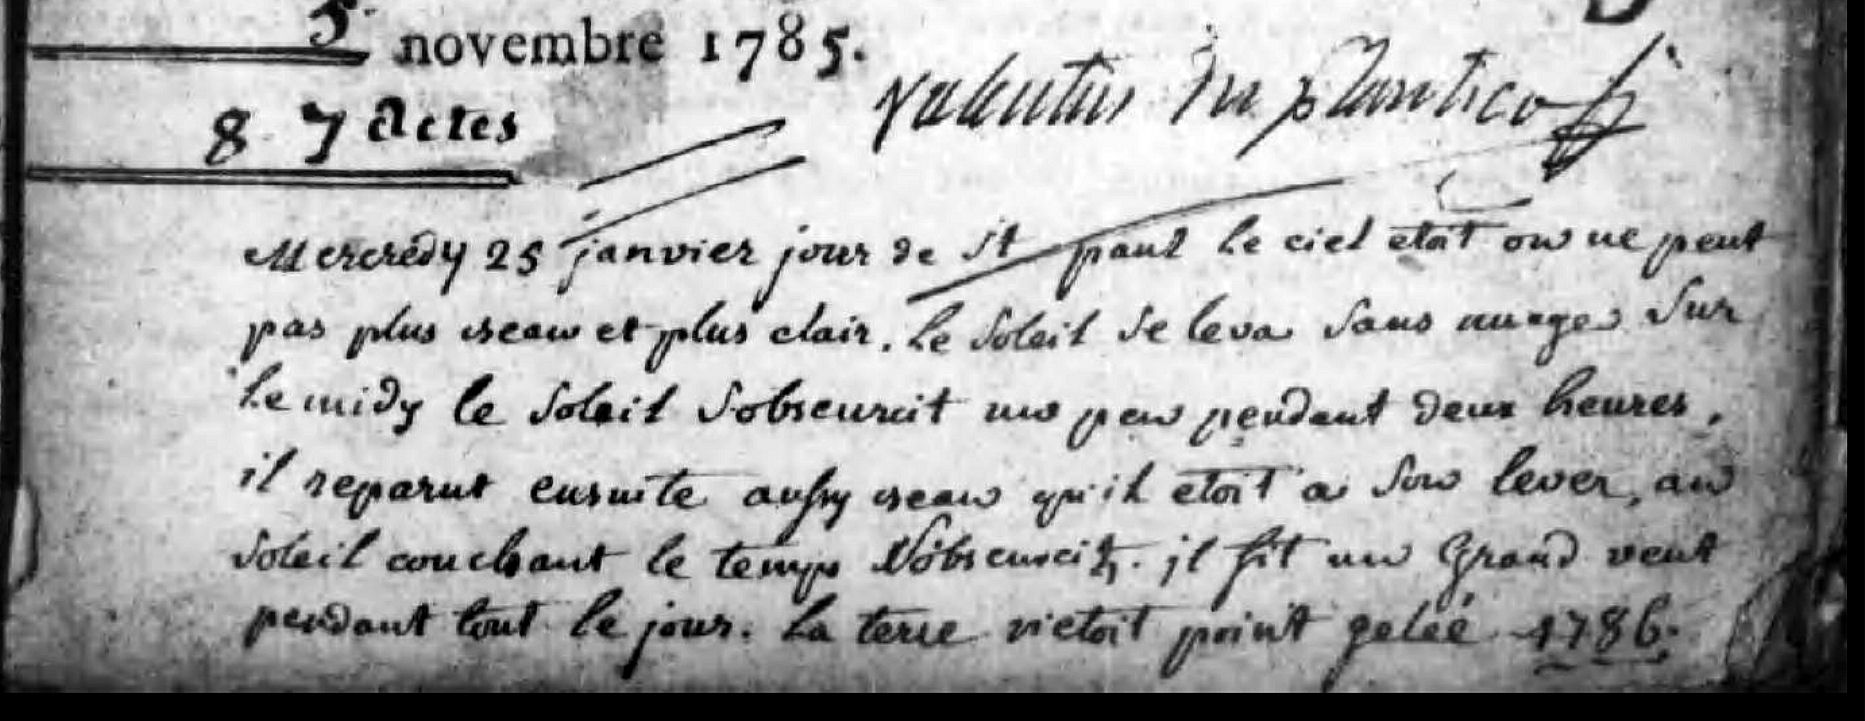 5. novembre 1785.
8 7 Actes
Mercredy 25 janvier jour de St paul le ciel etoit on ne peut
pas plus beau et plus clair. Le soleil se leva sans nuages sur
le midy le soleil s'obscurcit un peu pendant deux heures,
il reparut ensuite aussy beau qu'il etoit a son lever, au
soleil couchant le temps s'obscurcit. il fit un Grand vent
pendant tout le jour. La terre n'etoit point gelée 1786.